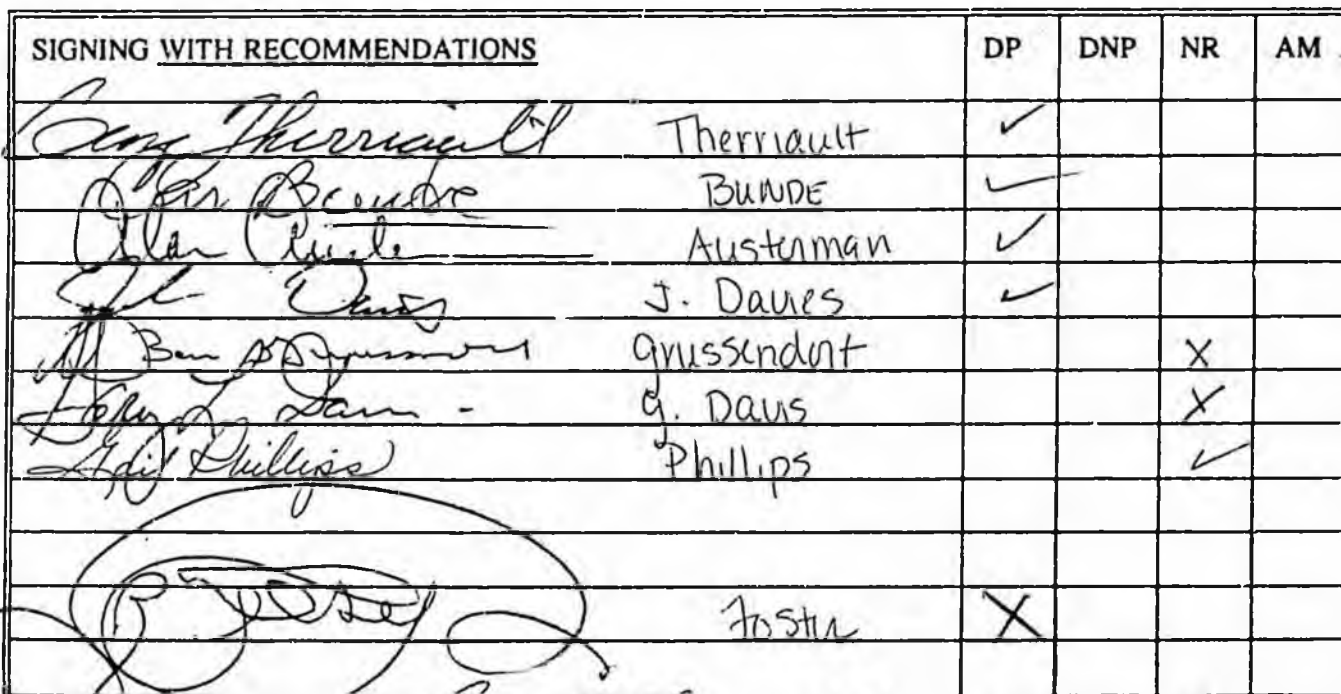 SIGNING WITH RECOMMENDATIONS DP DNP NR AM
Gene Therriault Therriault ✓
Con Bunde BUNDE ✓
Alan Austerman ✓
J. Davies ✓
Ben Grussendorf X
Gary L. Davis G. Davis X
Gail Phillips Phillips ✓
Foster X